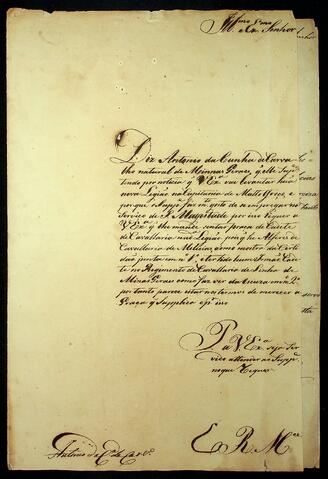 Illmo e Exmo Senhor
Diz Antonio da Cunha de Carva
lho natural de Minnas Geraes, q elle Supp
tendo por noticia q V Exª vai Levantar hua
nova Legião na Capitania de Matto Grosso, e
por que o Supp. faz m. gosto de se empregar no
Serviço de S. Magestade por iso Requer a
V Exª q lhe mande sentar praça de Cadete
de Cavallaria na d. Legião, pois q he Alferes de
Cavallaria de Melicia como mostra da Certi
dão junta em n.º 1, e ter hum Irmão Cade
te no Regimento de Cavallaria de Linha de
Minas Geraes como faz ver da
por tanto parece estar nos termos de merecer a
Graça q Supplica e p.r iso
P a V Exª seja Ser
vido attender ao Supp.
no que Requer
E R M.ce
Antonio da C.ª de Carv.º